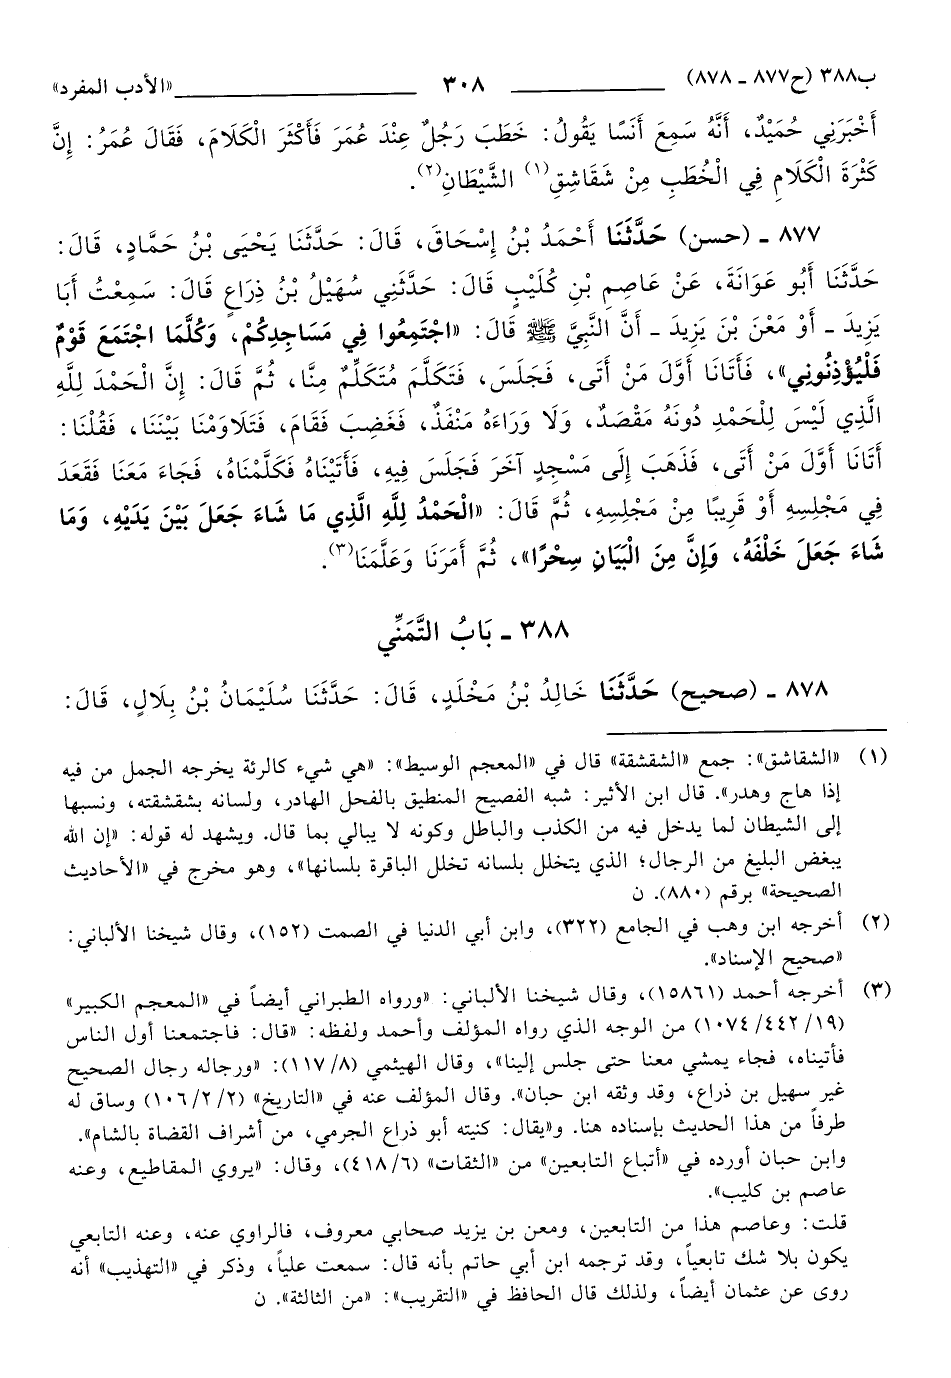 ب٣٨٨ (ح٨٧٧ ـ ٨٧٨) ٣٠٨ «الأدب المفرد»
أَخْبَرَنِي حُمَيْدٌ، أَنَّهُ سَمِعَ أَنَسًا يَقُولُ: خَطَبَ رَجُلٌ عِنْدَ عُمَرَ فَأَكْثَرَ الْكَلَامَ، فَقَالَ عُمَرُ: إِنَّ
كَثْرَةَ الْكَلَامِ فِي الْخُطَبِ مِنْ شَقَاشِقِ(١) الشَّيْطَانِ(٢).
٨٧٧ ـ (حسن) حَدَّثَنَا أَحْمَدُ بْنُ إِسْحَاقَ، قَالَ: حَدَّثَنَا يَحْيَى بْنُ حَمَّادٍ، قَالَ:
حَدَّثَنَا أَبُو عَوَانَةَ، عَنْ عَاصِمِ بْنِ كُلَيْبٍ قَالَ: حَدَّثَنِي سُهَيْلُ بْنُ ذِرَاعٍ قَالَ: سَمِعْتُ أَبَا
يَزِيدَ ـ أَوْ مَعْنَ بْنَ يَزِيدَ ـ أَنَّ النَّبِيَّ ﷺ قَالَ: «اجْتَمِعُوا فِي مَسَاجِدِكُمْ، وَكُلَّمَا اجْتَمَعَ قَوْمٌ
فَلْيُؤْذِنُونِي»، فَأَتَانَا أَوَّلَ مَنْ أَتَى، فَجَلَسَ، فَتَكَلَّمَ مُتَكَلِّمٌ مِنَّا، ثُمَّ قَالَ: إِنَّ الْحَمْدَ لِلَّهِ
الَّذِي لَيْسَ لِلْحَمْدِ دُونَهُ مَقْصَدٌ، وَلَا وَرَاءَهُ مَنْفَذٌ، فَغَضِبَ فَقَامَ، فَتَلَاوَمْنَا بَيْنَنَا، فَقُلْنَا:
أَتَانَا أَوَّلَ مَنْ أَتَى، فَذَهَبَ إِلَى مَسْجِدٍ آخَرَ فَجَلَسَ فِيهِ، فَأَتَيْنَاهُ فَكَلَّمْنَاهُ، فَجَاءَ مَعَنَا فَقَعَدَ
فِي مَجْلِسِهِ أَوْ قَرِيبًا مِنْ مَجْلِسِهِ، ثُمَّ قَالَ: «الْحَمْدُ لِلَّهِ الَّذِي مَا شَاءَ جَعَلَ بَيْنَ يَدَيْهِ، وَمَا
شَاءَ جَعَلَ خَلْفَهُ، وَإِنَّ مِنَ الْبَيَانِ سِحْرًا»، ثُمَّ أَمَرَنَا وَعَلَّمَنَا(٣).
٣٨٨ ـ بَابُ التَّمَنِّي
٨٧٨ ـ (صحيح) حَدَّثَنَا خَالِدُ بْنُ مَخْلَدٍ، قَالَ: حَدَّثَنَا سُلَيْمَانُ بْنُ بِلَالٍ، قَالَ:
(١) «الشقاشق»: جمع «الشقشقة» قال في «المعجم الوسيط»: «هي شيء كالرئة يخرجه الجمل من فيه
إذا هاج وهدر». قال ابن الأثير: شبه الفصيح المنطيق بالفحل الهادر، ولسانه بشقشقته، ونسبها
إلى الشيطان لما يدخل فيه من الكذب والباطل وكونه لا يبالي بما قال. ويشهد له قوله: «إن الله
يبغض البليغ من الرجال؛ الذي يتخلل بلسانه تخلل الباقرة بلسانها»، وهو مخرج في «الأحاديث
الصحيحة» برقم (٨٨٠). ن
(٢) أخرجه ابن وهب في الجامع (٣٢٢)، وابن أبي الدنيا في الصمت (١٥٢)، وقال شيخنا الألباني:
«صحيح الإسناد».
(٣) أخرجه أحمد (١٥٨٦١)، وقال شيخنا الألباني: «ورواه الطبراني أيضاً في «المعجم الكبير»
(١٩/ ٤٤٢/ ١٠٧٤) من الوجه الذي رواه المؤلف وأحمد ولفظه: «قال: فاجتمعنا أول الناس
فأتيناه، فجاء يمشي معنا حتى جلس إلينا»، وقال الهيثمي (٨/ ١١٧): «ورجاله رجال الصحيح
غير سهيل بن ذراع، وقد وثقه ابن حبان». وقال المؤلف عنه في «التاريخ» (٢/ ٢/ ١٠٦) وساق له
طرفاً من هذا الحديث بإسناده هنا. و«يقال: كنيته أبو ذراع الجرمي، من أشراف القضاة بالشام».
وابن حبان أورده في «أتباع التابعين» من «الثقات» (٦/ ٤١٨)، وقال: «يروي المقاطيع، وعنه
عاصم بن كليب».
قلت: وعاصم هذا من التابعين، ومعن بن يزيد صحابي معروف، فالراوي عنه، وعنه التابعي
يكون بلا شك تابعياً، وقد ترجمه ابن أبي حاتم بأنه قال: سمعت علياً، وذكر في «التهذيب» أنه
روى عن عثمان أيضاً، ولذلك قال الحافظ في «التقريب»: «من الثالثة». ن